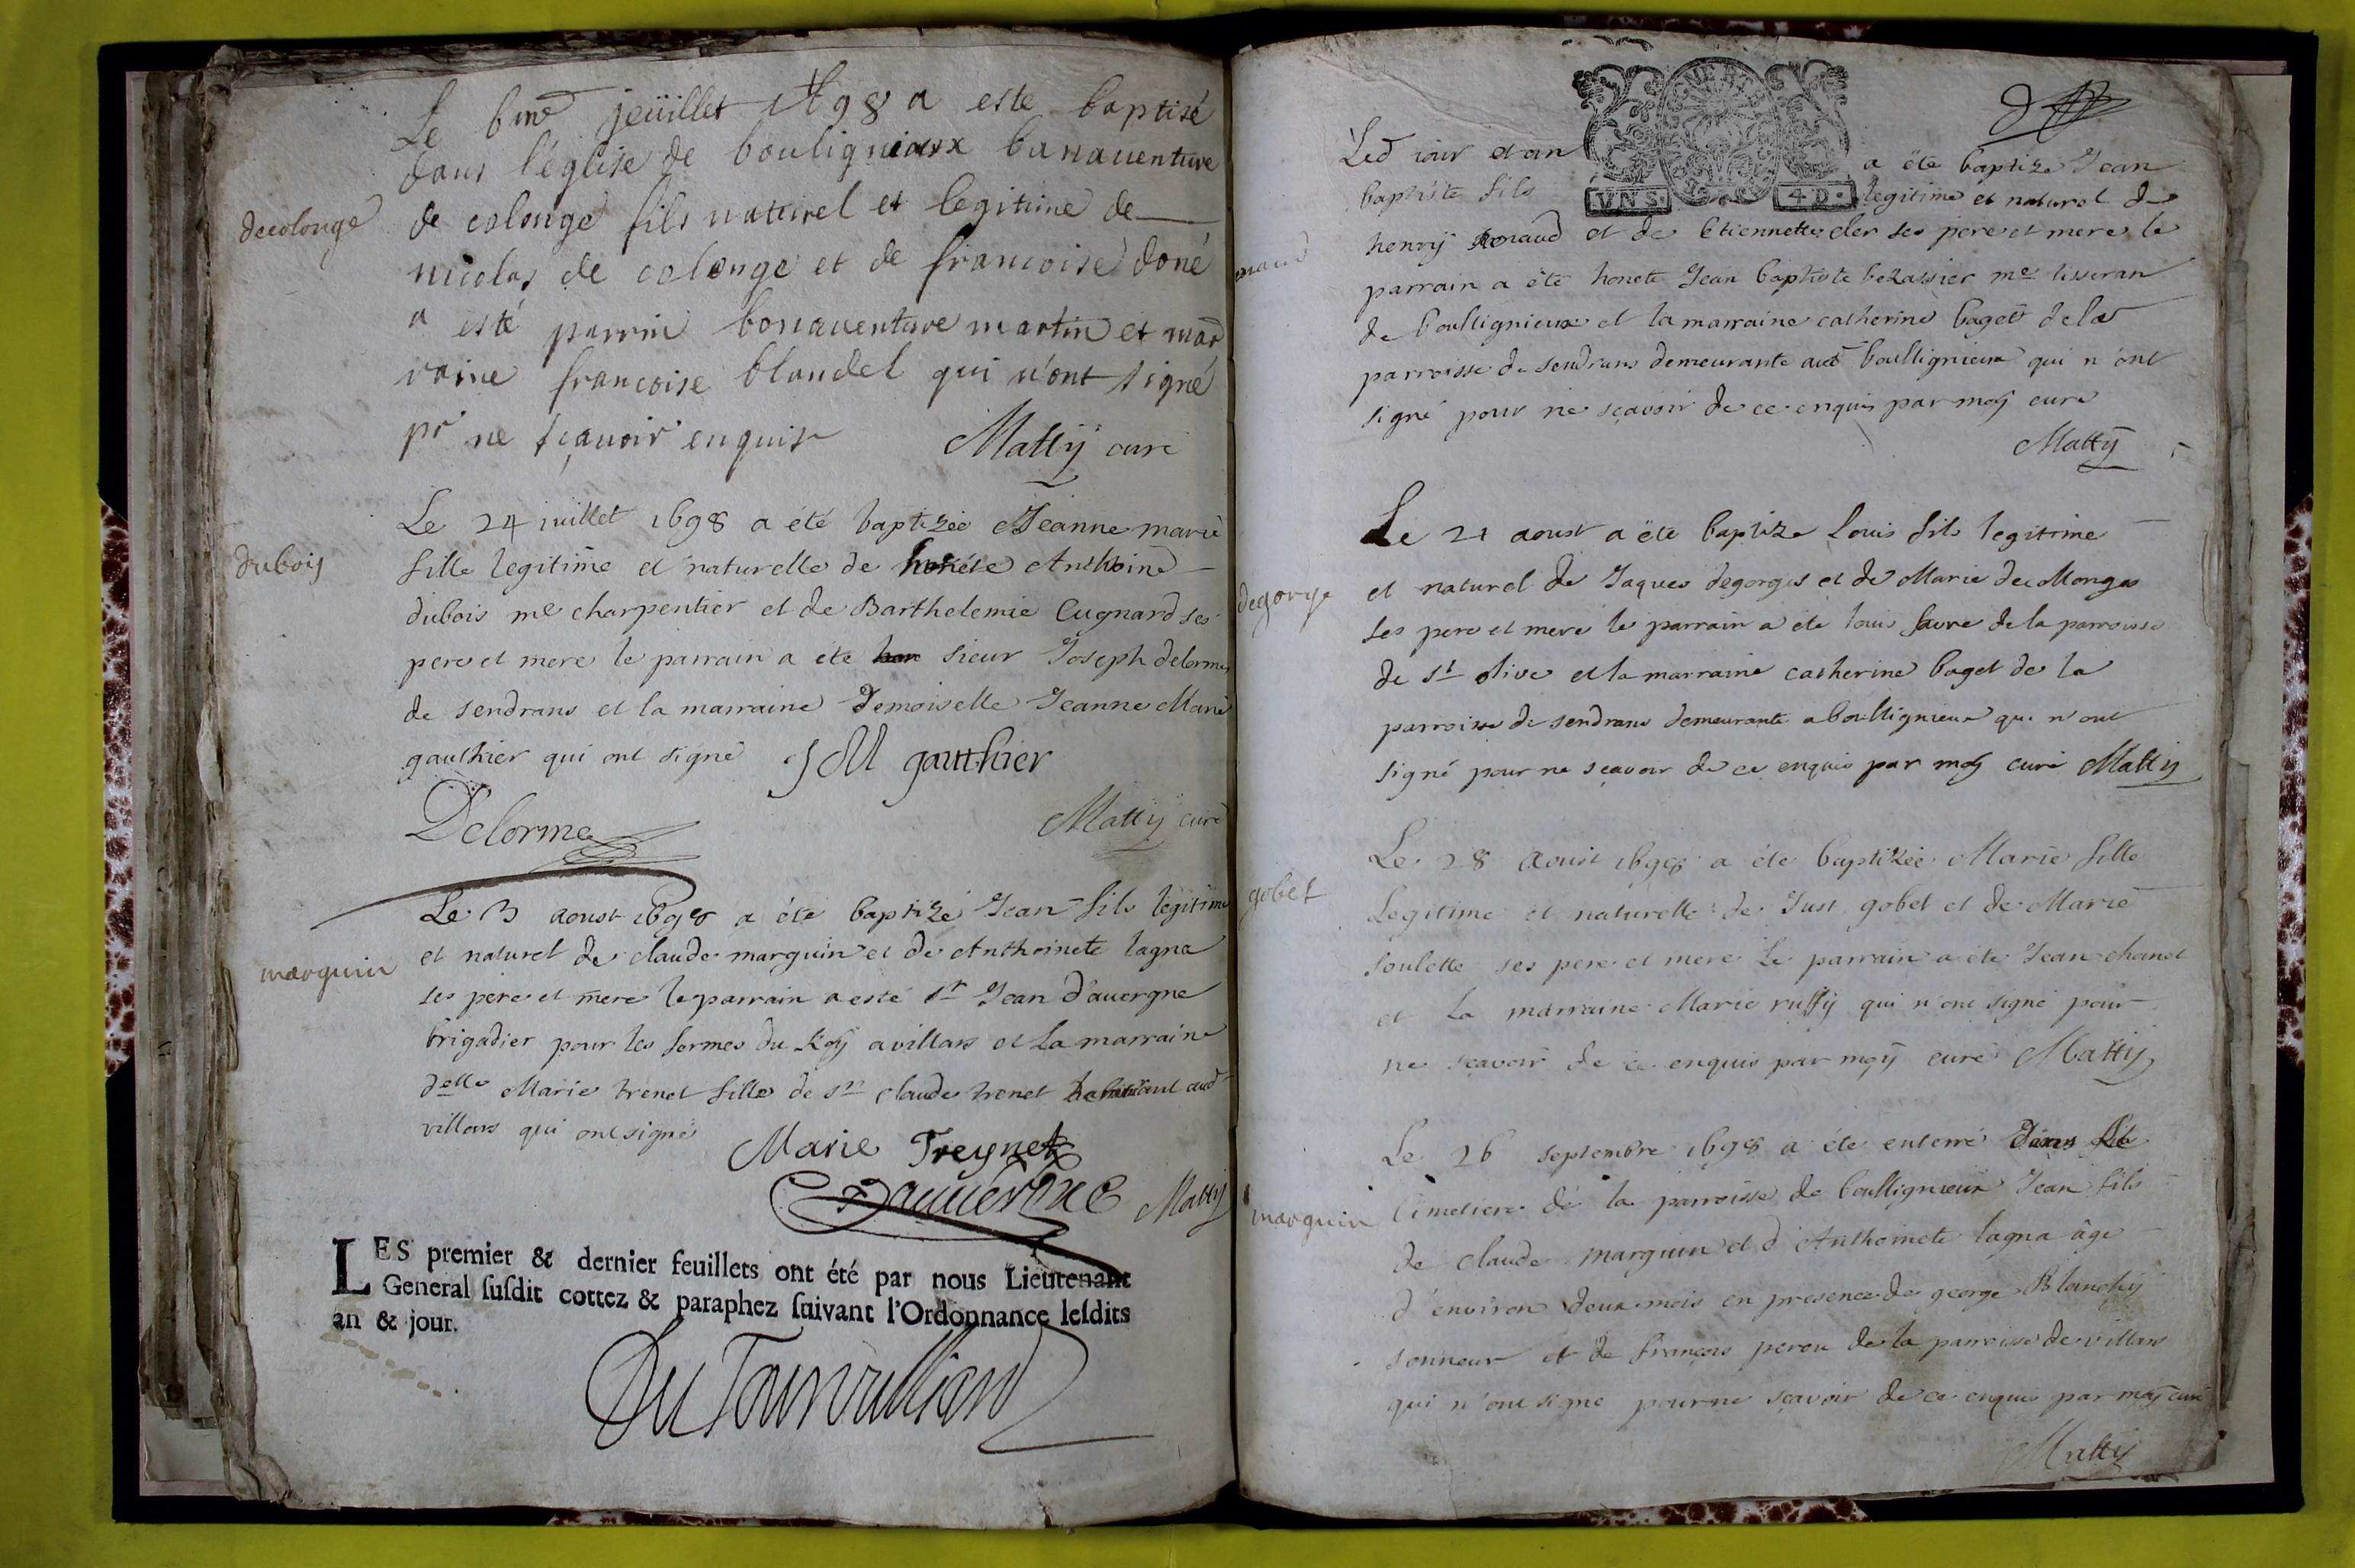 Le 6me jeüillet 1698 a este baptisé
dans l'église de bouligniaux banauenture
decolonge
de colonge fils naturel et legitime de
nicolas de colonge et de francoise doné
a esté parrin bonauenture martin et mar
raine francoise blandel qui n'ont signé
pr ne sçauoir enquis
Mattÿ curé
Le 24 juillet 1698 a été baptizée Jeanne marie
dubois
fille legitime et naturelle de honéte Anthoine
dubois me charpentier et de Barthelemie Cugnard ses
pere et mere le parrain a été sieur Joseph delorme
de sendrans et la marraine Demoiselle Jeanne Marie
gauthier qui ont signé J M gautthier
Delorme
Mattÿ curé
Le 3 aoust 1698 a été baptizé Jean fils legitime
marguin
et naturel de claude marguin et de Anthoinete lagna
ses pere et mere le parrain a esté sr Jean d'auergne
brigadier pour les fermes du Roy a villars et La marraine
delle Marie trenet fille de sr claude trenet habitant aud
villars qui ont signé
Marie Treynet
Dauuergne
Mattÿ
LES premier & dernier feuillets ont été par nous Lieutenant
General susdit cottez & paraphez suivant l'Ordonnance lesdits
an & jour.
Led jour et an a été baptizé Jean
baptiste fils legitime et naturel de
VN S. 4 D.
henrÿ et de Etiennette cler ses pere et mere le
parrain a été honete Jean baptiste bezassier me tisseran
de boullignieux et la marraine catherine baget de la
parroisse de sendrans demeurante aud boullignieux qui n'ont
signé pour ne sçavoir de ce enquis par moÿ curé
Mattÿ
Le 21 aoust a été baptizé Louis fils legitime
degorge
et naturel de Jaques degorges et de Marie des Monges
ses pere et mere le parrain a été louis favre de la parroisse
de st olive et la marraine catherine baget de la
parroisse de sendrans demeurante a boullignieux qui n'ont
signé pour ne sçavoir de ce enquis par moÿ curé Mattÿ
Le 28 aoust 1698 a été baptizée Marie fille
gobet
Legitime et naturelle de Just gobet et de Marie
soulette ses pere et mere Le parrain a été Jean chanel
et La marraine Marie ruffÿ qui n'ont signé pour
ne sçavoir de ce enquis par moÿ curé Mattÿ
Le 26 septembre 1698 a été enterré dans le
marguin
Cimetiere de la parroisse de boullignieux Jean fils
de claude marguin et d'Anthoinete lagna âgé
d'environ deux mois en presence de george Blanchÿ
sonneur et de françois peron de la parroisse de villars
qui n'ont signé pour ne sçavoir de ce enquis par moÿ curé
Mattÿ